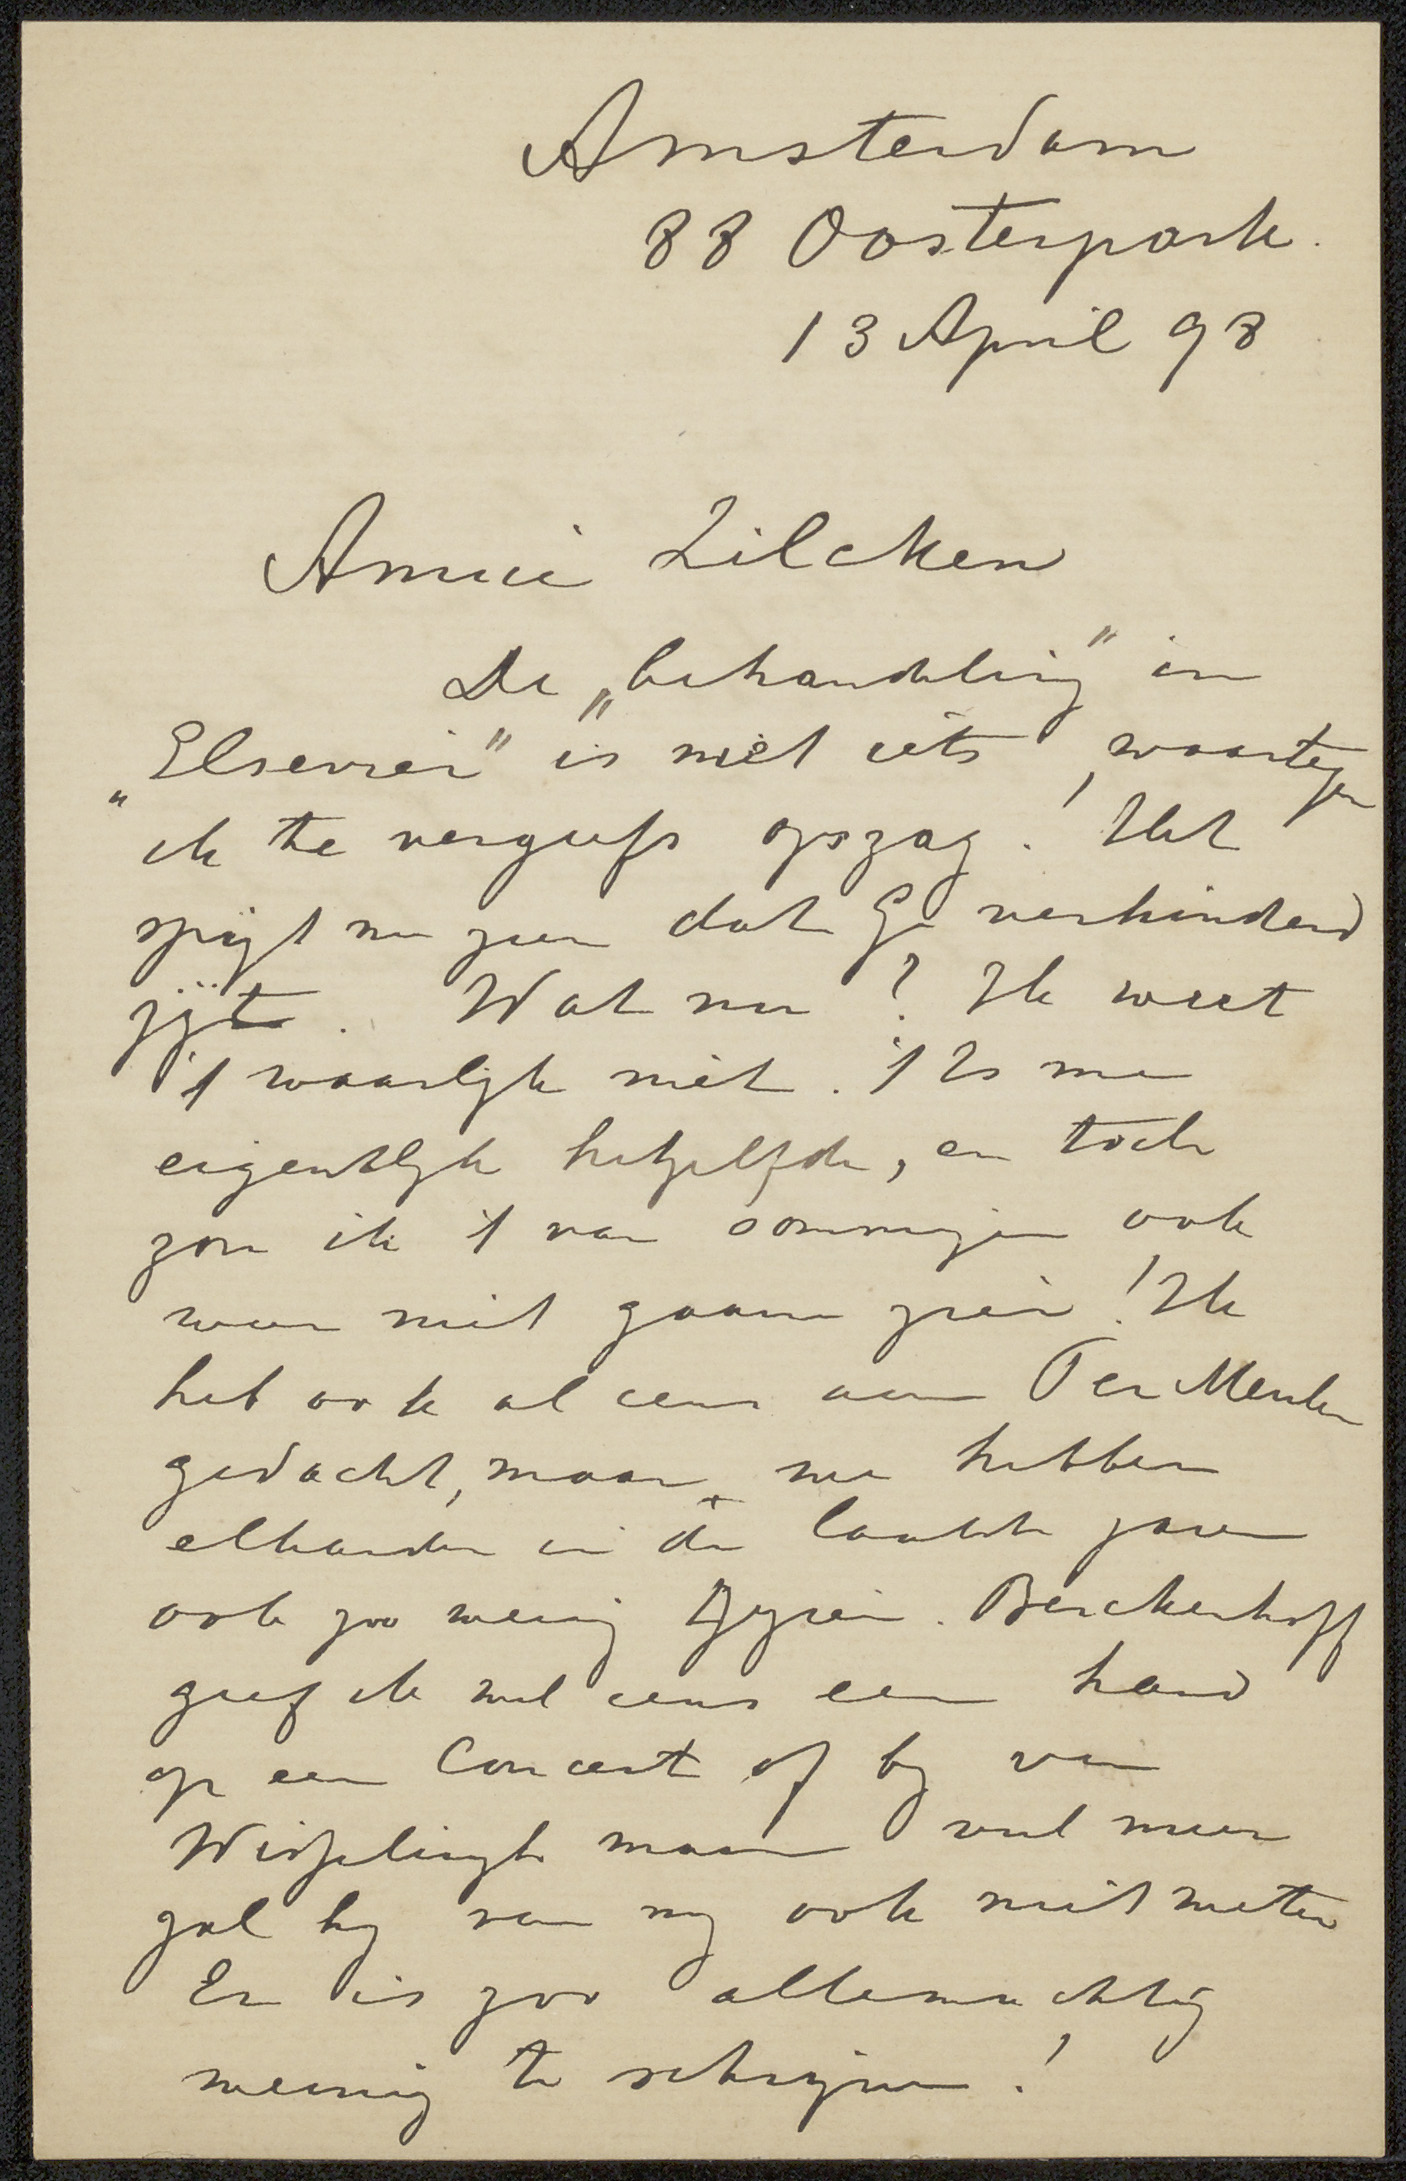 Amsterdam
88 Oosterpark.
13 April 98
Amice Zilcken
De „behandeling" in
„Elsevier" is niet iets, waartegen
ik te vergeefs opzag! Het
spijt me zeer dat Ge verhinderd
zijt. Wat nu? Ik weet
't waarlijk niet. 't Is me
eigentlijk hetzelfde, en toch
zou ik 't van sommigen ook
weer niet gaarne zien! Ik
heb ook al eens aan Ter Meulen
gedacht, maar we hebben
elkander in de laatste jaren
ook zoo weinig gezien. Berckenhoff
geef ik wel eens een hand
op een Concert of bij van
Wisselingh maar veel meer
zal hij van mij ook niet weten
Er is zoo allemachtig
weinig te schrijven!